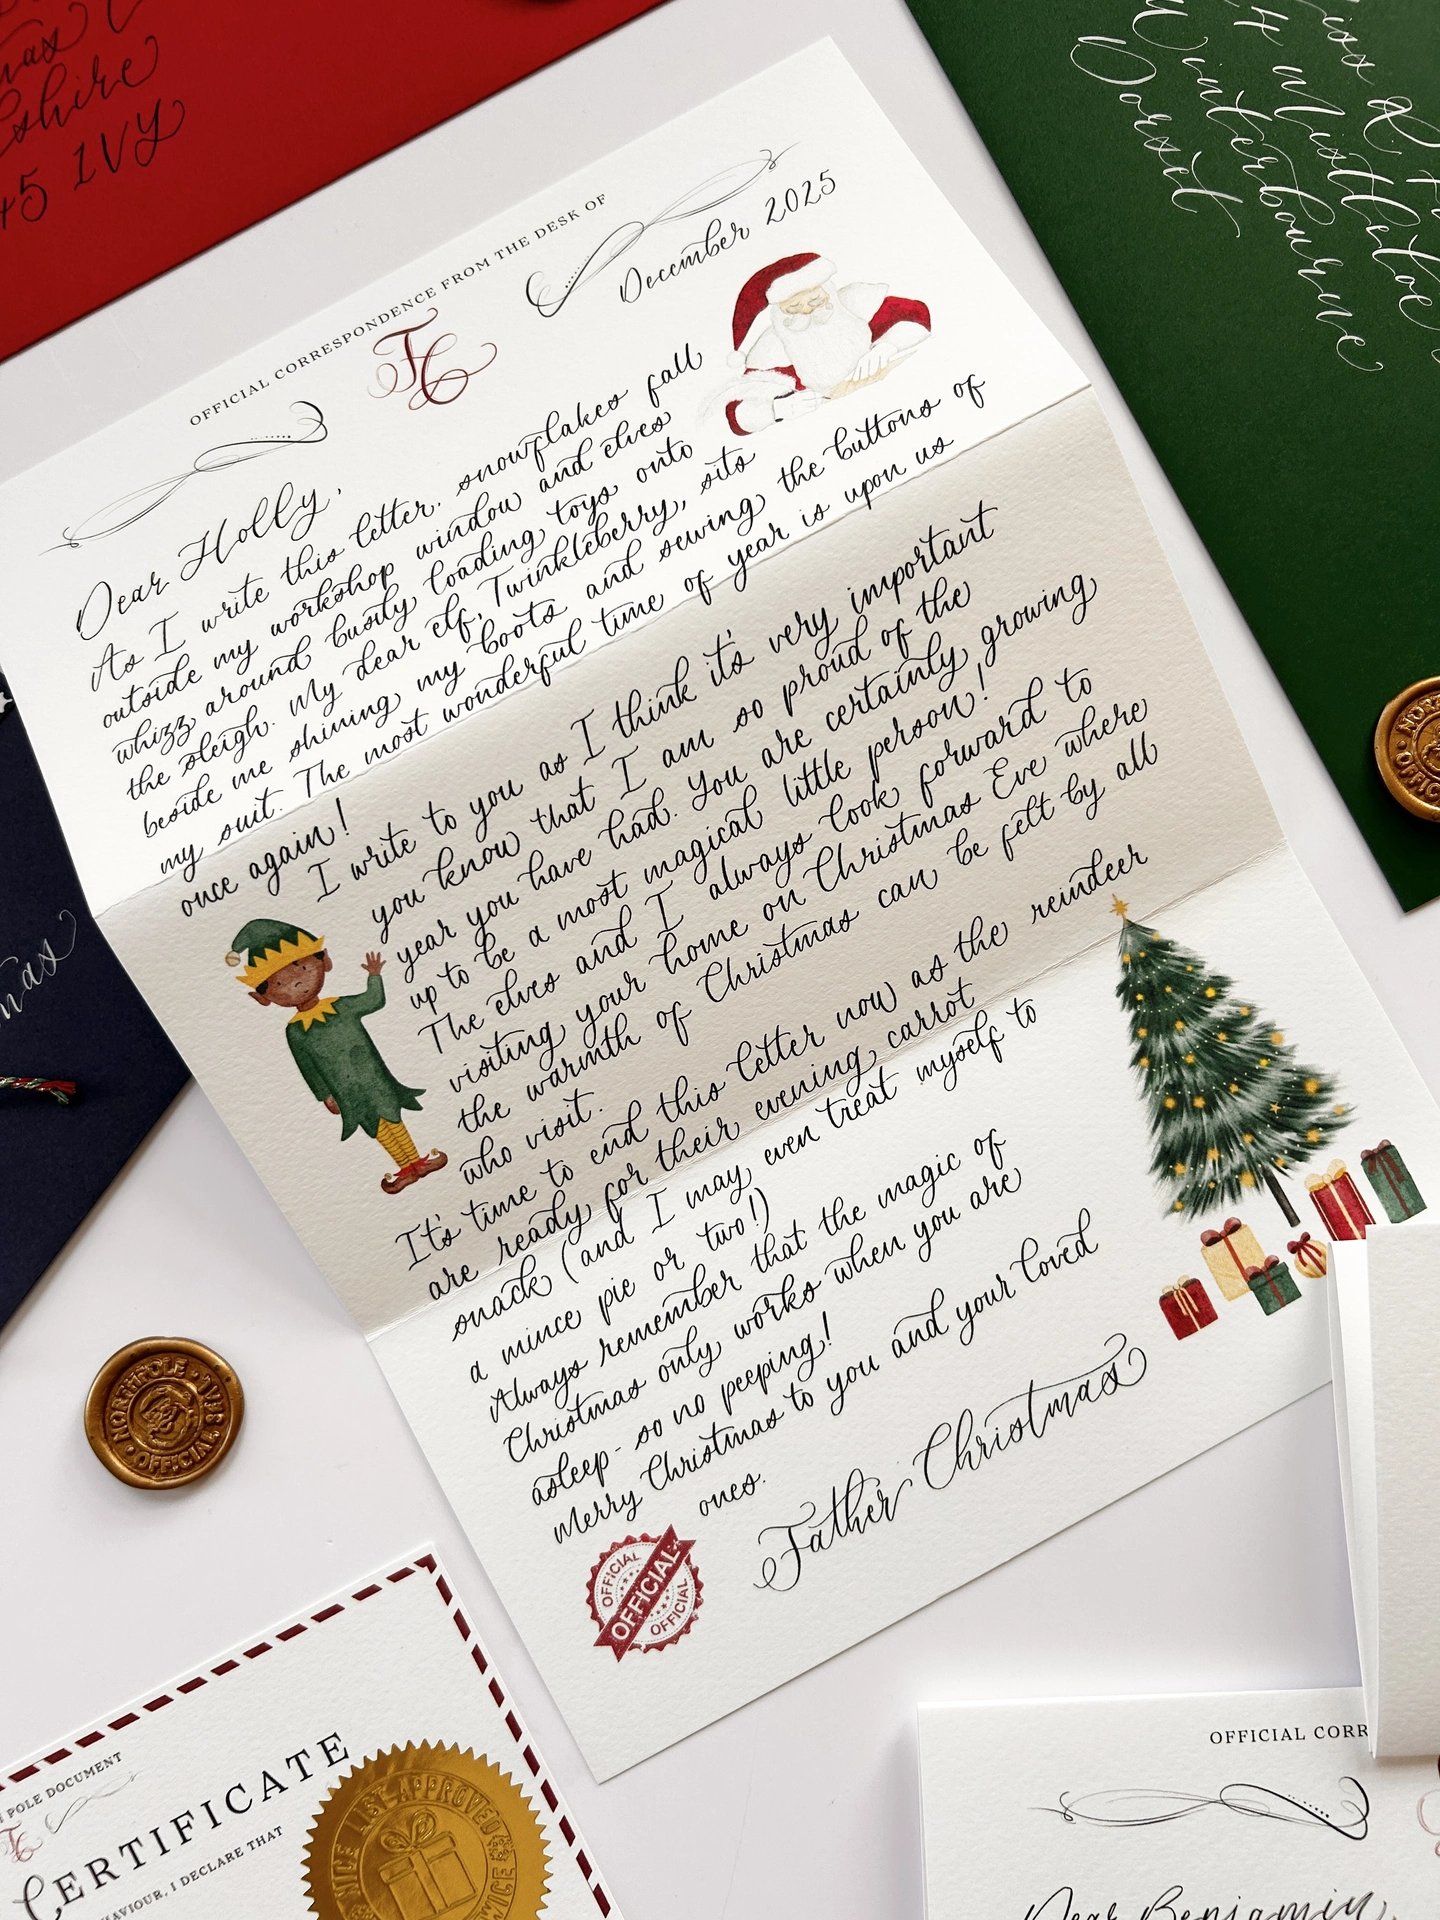 shire
45 1VY
Miss
4 Mistletoe
Winterbourne
Dorset
OFFICIAL CORRESPONDENCE FROM THE DESK OF
FC
December 2025
Dear Holly,
As I write this letter, snowflakes fall
outside my workshop window and elves
whizz around busily loading toys onto
the sleigh. My dear elf, Twinkleberry, sits
beside me shining my boots and sewing the buttons of
my suit. The most wonderful time of year is upon us
once again!
I write to you as I think it's very important
you know that I am so proud of the
year you have had. You are certainly growing
up to be a most magical little person!
The elves and I always look forward to
visiting your home on Christmas Eve where
the warmth of Christmas can be felt by all
who visit.
It's time to end this letter now as the reindeer
are ready for their evening carrot
snack (and I may even treat myself to
a mince pie or two!)
Always remember that the magic of
Christmas only works when you are
asleep - so no peeping!
Merry Christmas to you and your loved
ones.
Father Christmas
OFFICIAL
OFFICIAL
OFFICIAL
NORTH POLE · OFFICIAL SEAL ·
POLE DOCUMENT
CERTIFICATE
HAVIOUR, I DECLARE THAT
NICE LIST APPROVED
OFFICIAL CORR
Dear Benjamin,